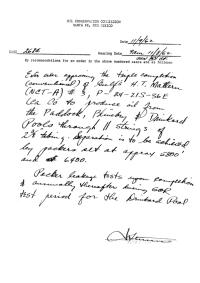 OIL CONSERVATION COMMISSION
SANTA FE, NEW MEXICO
Date 11/9/62
CASE 2686 Hearing Date 9am 11/8/62
My recommendations for an order in the above numbered cases are as follows:
Enter order approving the triple completion
(conventional) of Gulf's H.T. Mattern
(NCT-A) # 3, P-24-21S-36E
Lea Co to produce oil from
the Paddock, Blinebry & Drinkard
Pools through 11 strings of
2 3/8 tubing. Separation is to be achieved
by packers set at approx 5800'
and at 6400.
Packer leakage tests upon completion
& annually thereafter during GOR
test period for the Drinkard Pool